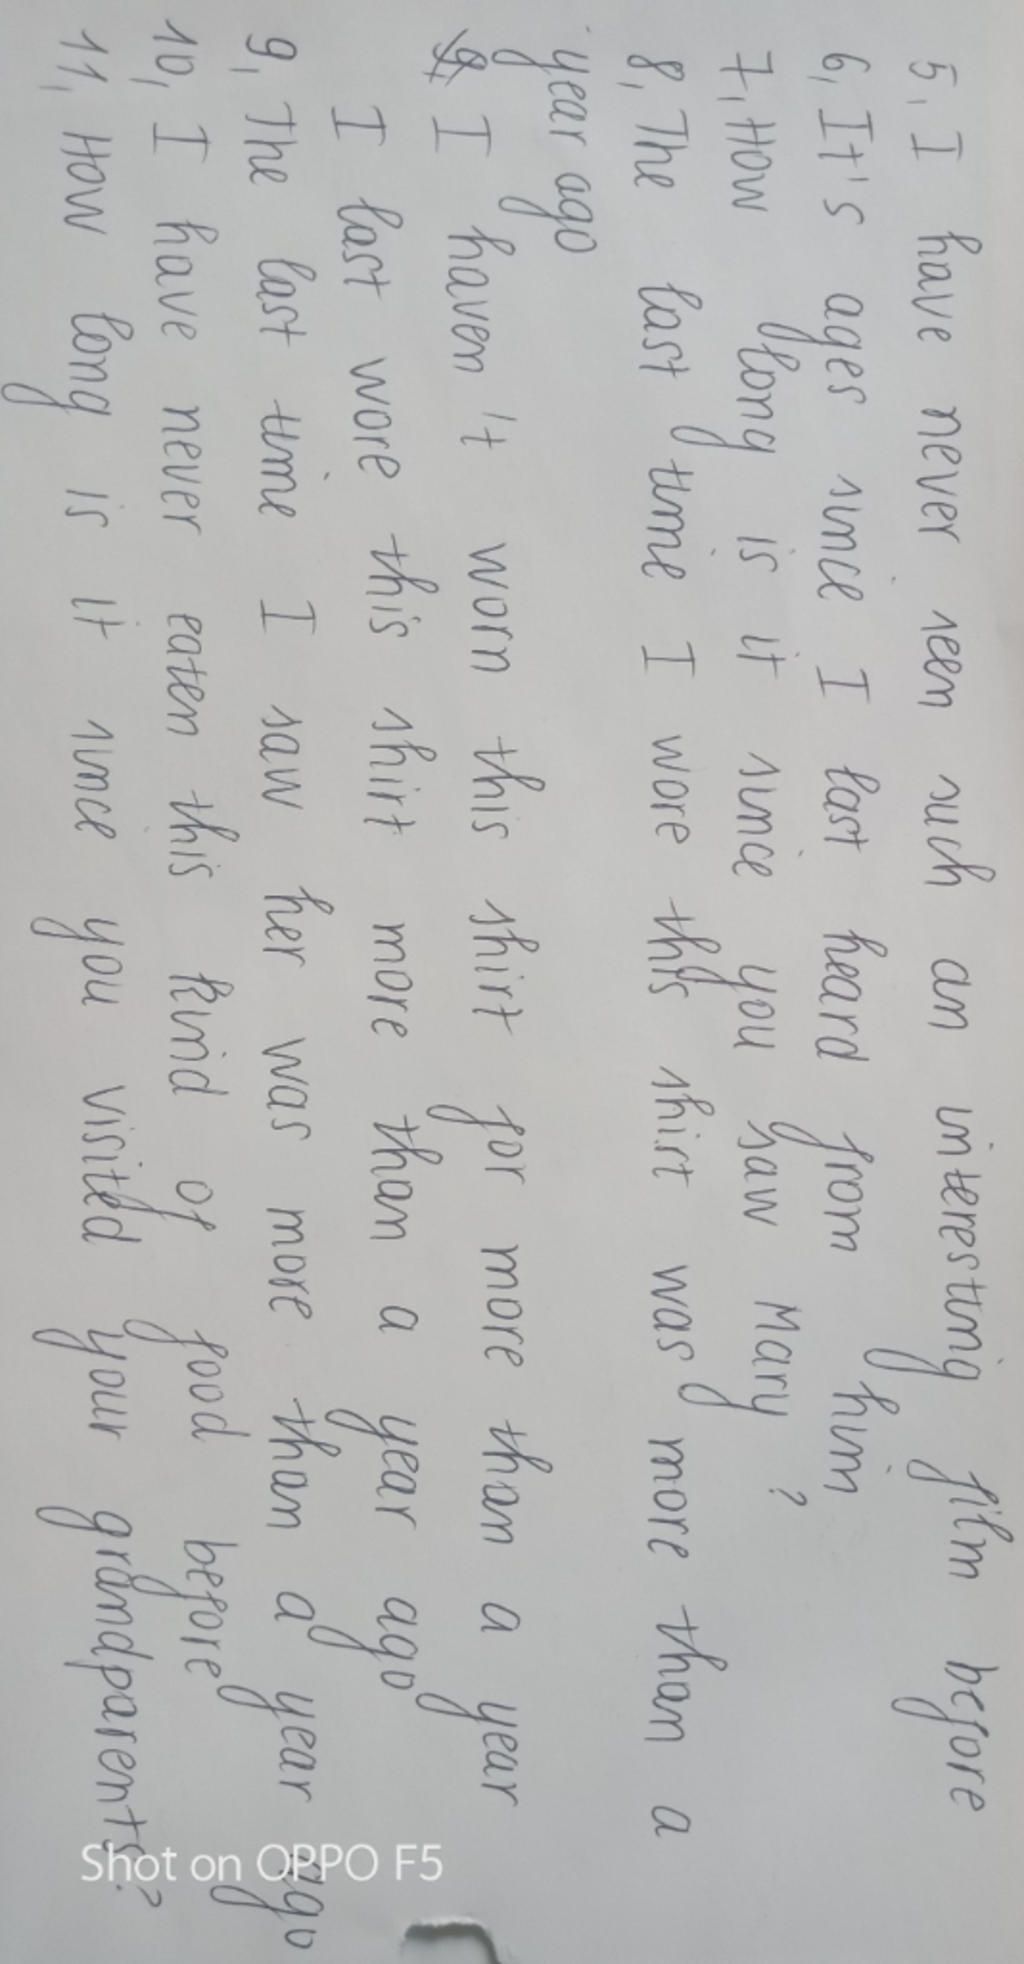 5, I have never seen such an interesting film before
6, It's ages since I last heard from him
7, How long is it since you saw Mary ?
8, The last time I wore this shirt was more than a
year ago
I haven't worn this shirt for more than a year
I last wore this shirt more than a year ago
9, The last time I saw her was more than a year ago
10, I have never eaten this kind of food before
11, How long is it since you visited your grandparents?
Shot on OPPO F5